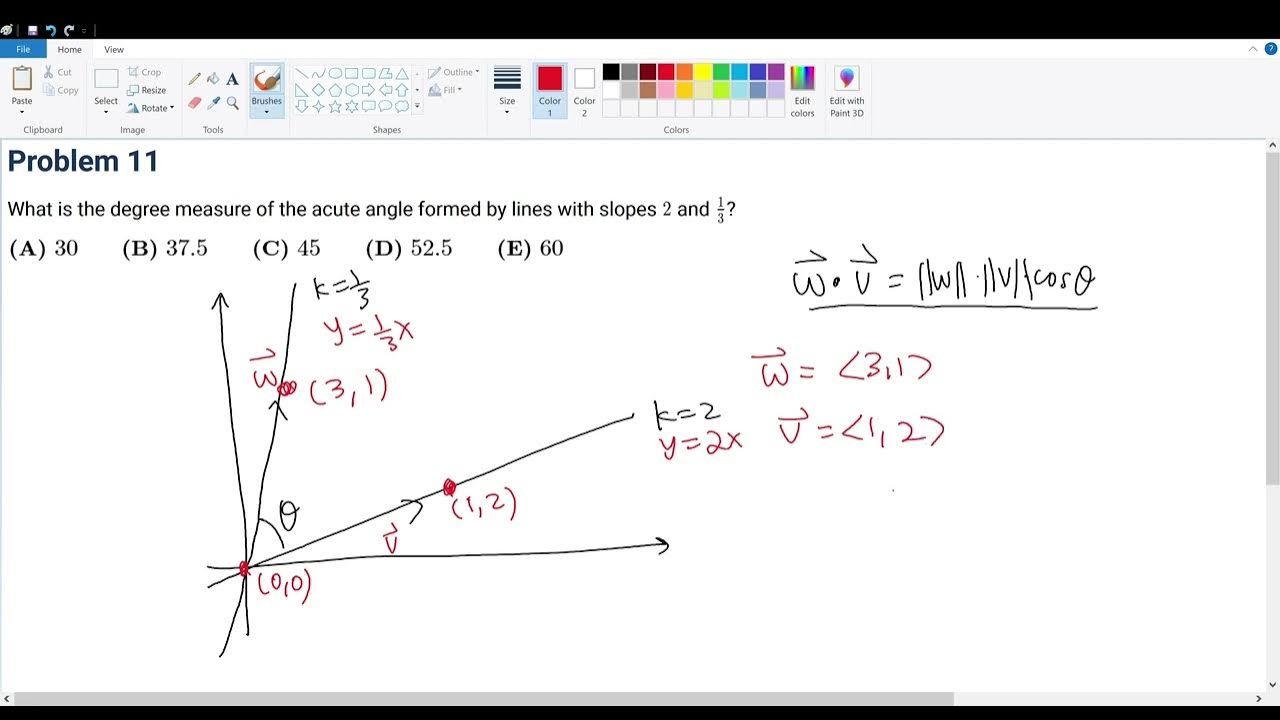 File Home View
Paste Cut Copy Clipboard
Select Crop Resize Rotate Image
Tools
Brushes
Outline Fill Shapes
Size
Color 1 Color 2 Edit colors Colors
Edit with Paint 3D
Problem 11
What is the degree measure of the acute angle formed by lines with slopes 2 and 1/3?
(A) 30 (B) 37.5 (C) 45 (D) 52.5 (E) 60
w⃗ · v⃗ = ||w|| · ||v|| cosθ
k=1/3
y=1/3x
w⃗ (3,1)
w⃗ = <3,1>
k=2
y=2x
v⃗ = <1,2>
(1,2)
θ
v⃗
(0,0)